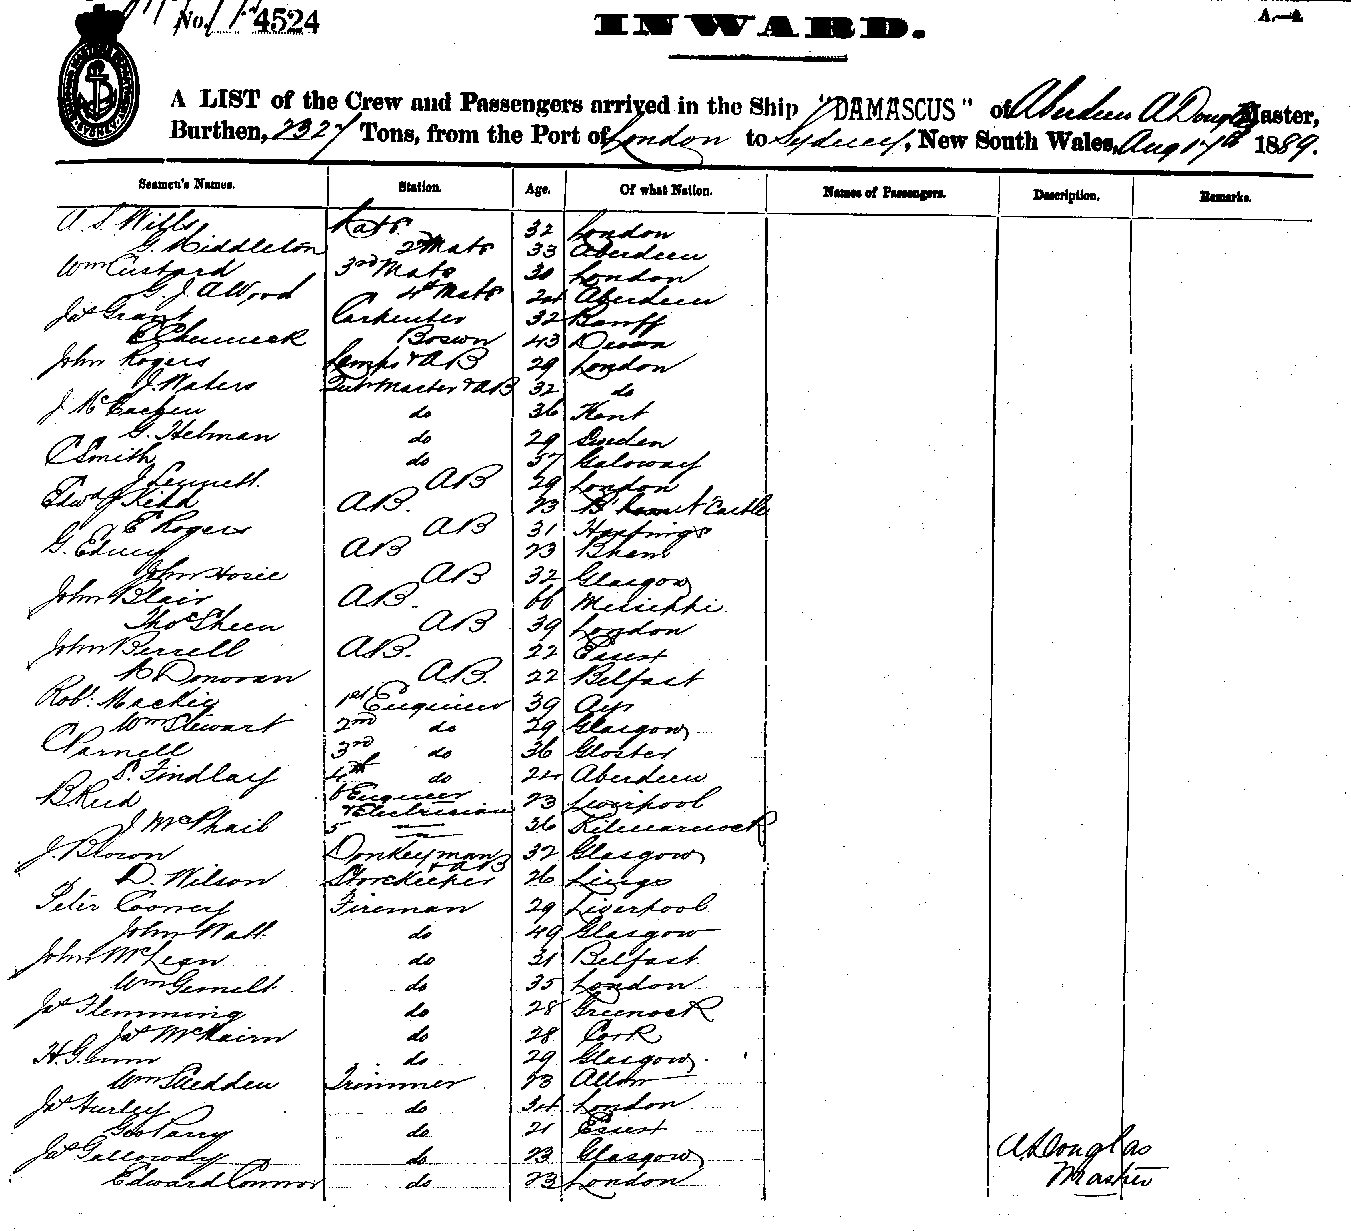 No. 4524
INWARD.
A.—2.
A LIST of the Crew and Passengers arrived in the Ship "DAMASCUS" of Aberdeen A Douglas Master,
Burthen, 2327 Tons, from the Port of London to Sydney, New South Wales, Aug 17th 1889.
Seamen's Names. Station. Age. Of what Nation. Names of Passengers. Description. Remarks.
A S Wills Mate 32 London
G. Middleton 2nd Mate 33 Aberdeen
Wm Custard 3rd Mate 30 London
G. J. A Wood 4th Mate 24 Aberdeen
Jas Grant Carpenter 32 Banff
E Chenneck Bosun 43 Devon
John Rogers Lamps & AB 29 London
J. Waters Qur Master & AB 32 do
J. McEachen do 36 Kent
G. Helman do 29 Sweden
C Smith do 37 Galoway
J Lennett AB 29 London
Edwd J Kidd AB. 23 Castle
E Rogers AB 31 Hastings
G. Edney AB 23 Bham
John Hosie AB 32 Glasgow
John Blair AB. 66 Missippi
Thos Sheen AB 39 London
John Berrell AB. 22 Essex
A Donovan AB. 22 Belfast
Robt Mackie 1st Engineer 39 Ayr
Wm Stewart 2nd do 29 Glasgow
C Parnell 3rd do 36 Gloster
S. Findlay 4th do 24 Aberdeen
B Reid Engineer & Electrician 23 Liverpool
J McPhail 5 36 Kilmarnock
J. Brown Donkeyman & AB 32 Glasgow
D. Wilson Storekeeper 26
Peter Cooney Fireman 29 Liverpool
John Watt do 49 Glasgow
John McLean do 31 Belfast
Wm Gemelt do 35 London
Jas Flemming do 28 Greenock
Jas McNairn do 28 Cork
H. Gunn do 29 Glasgow
Wm Shedden Trimmer 23 Alloa
Jas Hurley do 34 London
Geo Parry do 21 Essex
Jas Galloway do 23 Glasgow
Edward Connor do 23 London
A Douglas
Master